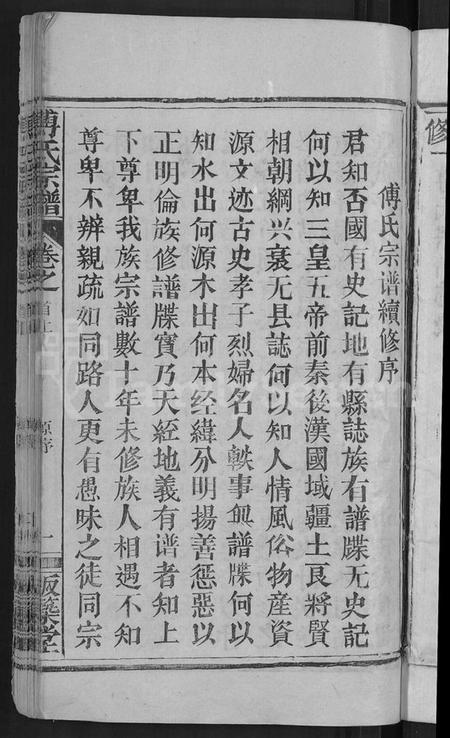 傅氏宗谱續修序
君知否國有史記地有縣誌族有譜牒无史記
何以知三皇五帝前秦後漢國域疆土良將賢
相朝綱兴衰无县誌何以知人情風俗物産資
源文迹古史孝子烈婦名人軼事無譜牒何以
知水出何源木出何本经緯分明揚善惩惡以
正明倫族修譜牒實乃天経地義有谱者知上
下尊卑我族宗譜數十年未修族人相遇不知
尊卑不辨親疏如同路人更有愚昧之徒同宗
傅氏宗譜
卷之首上
原序
一
版築堂
修